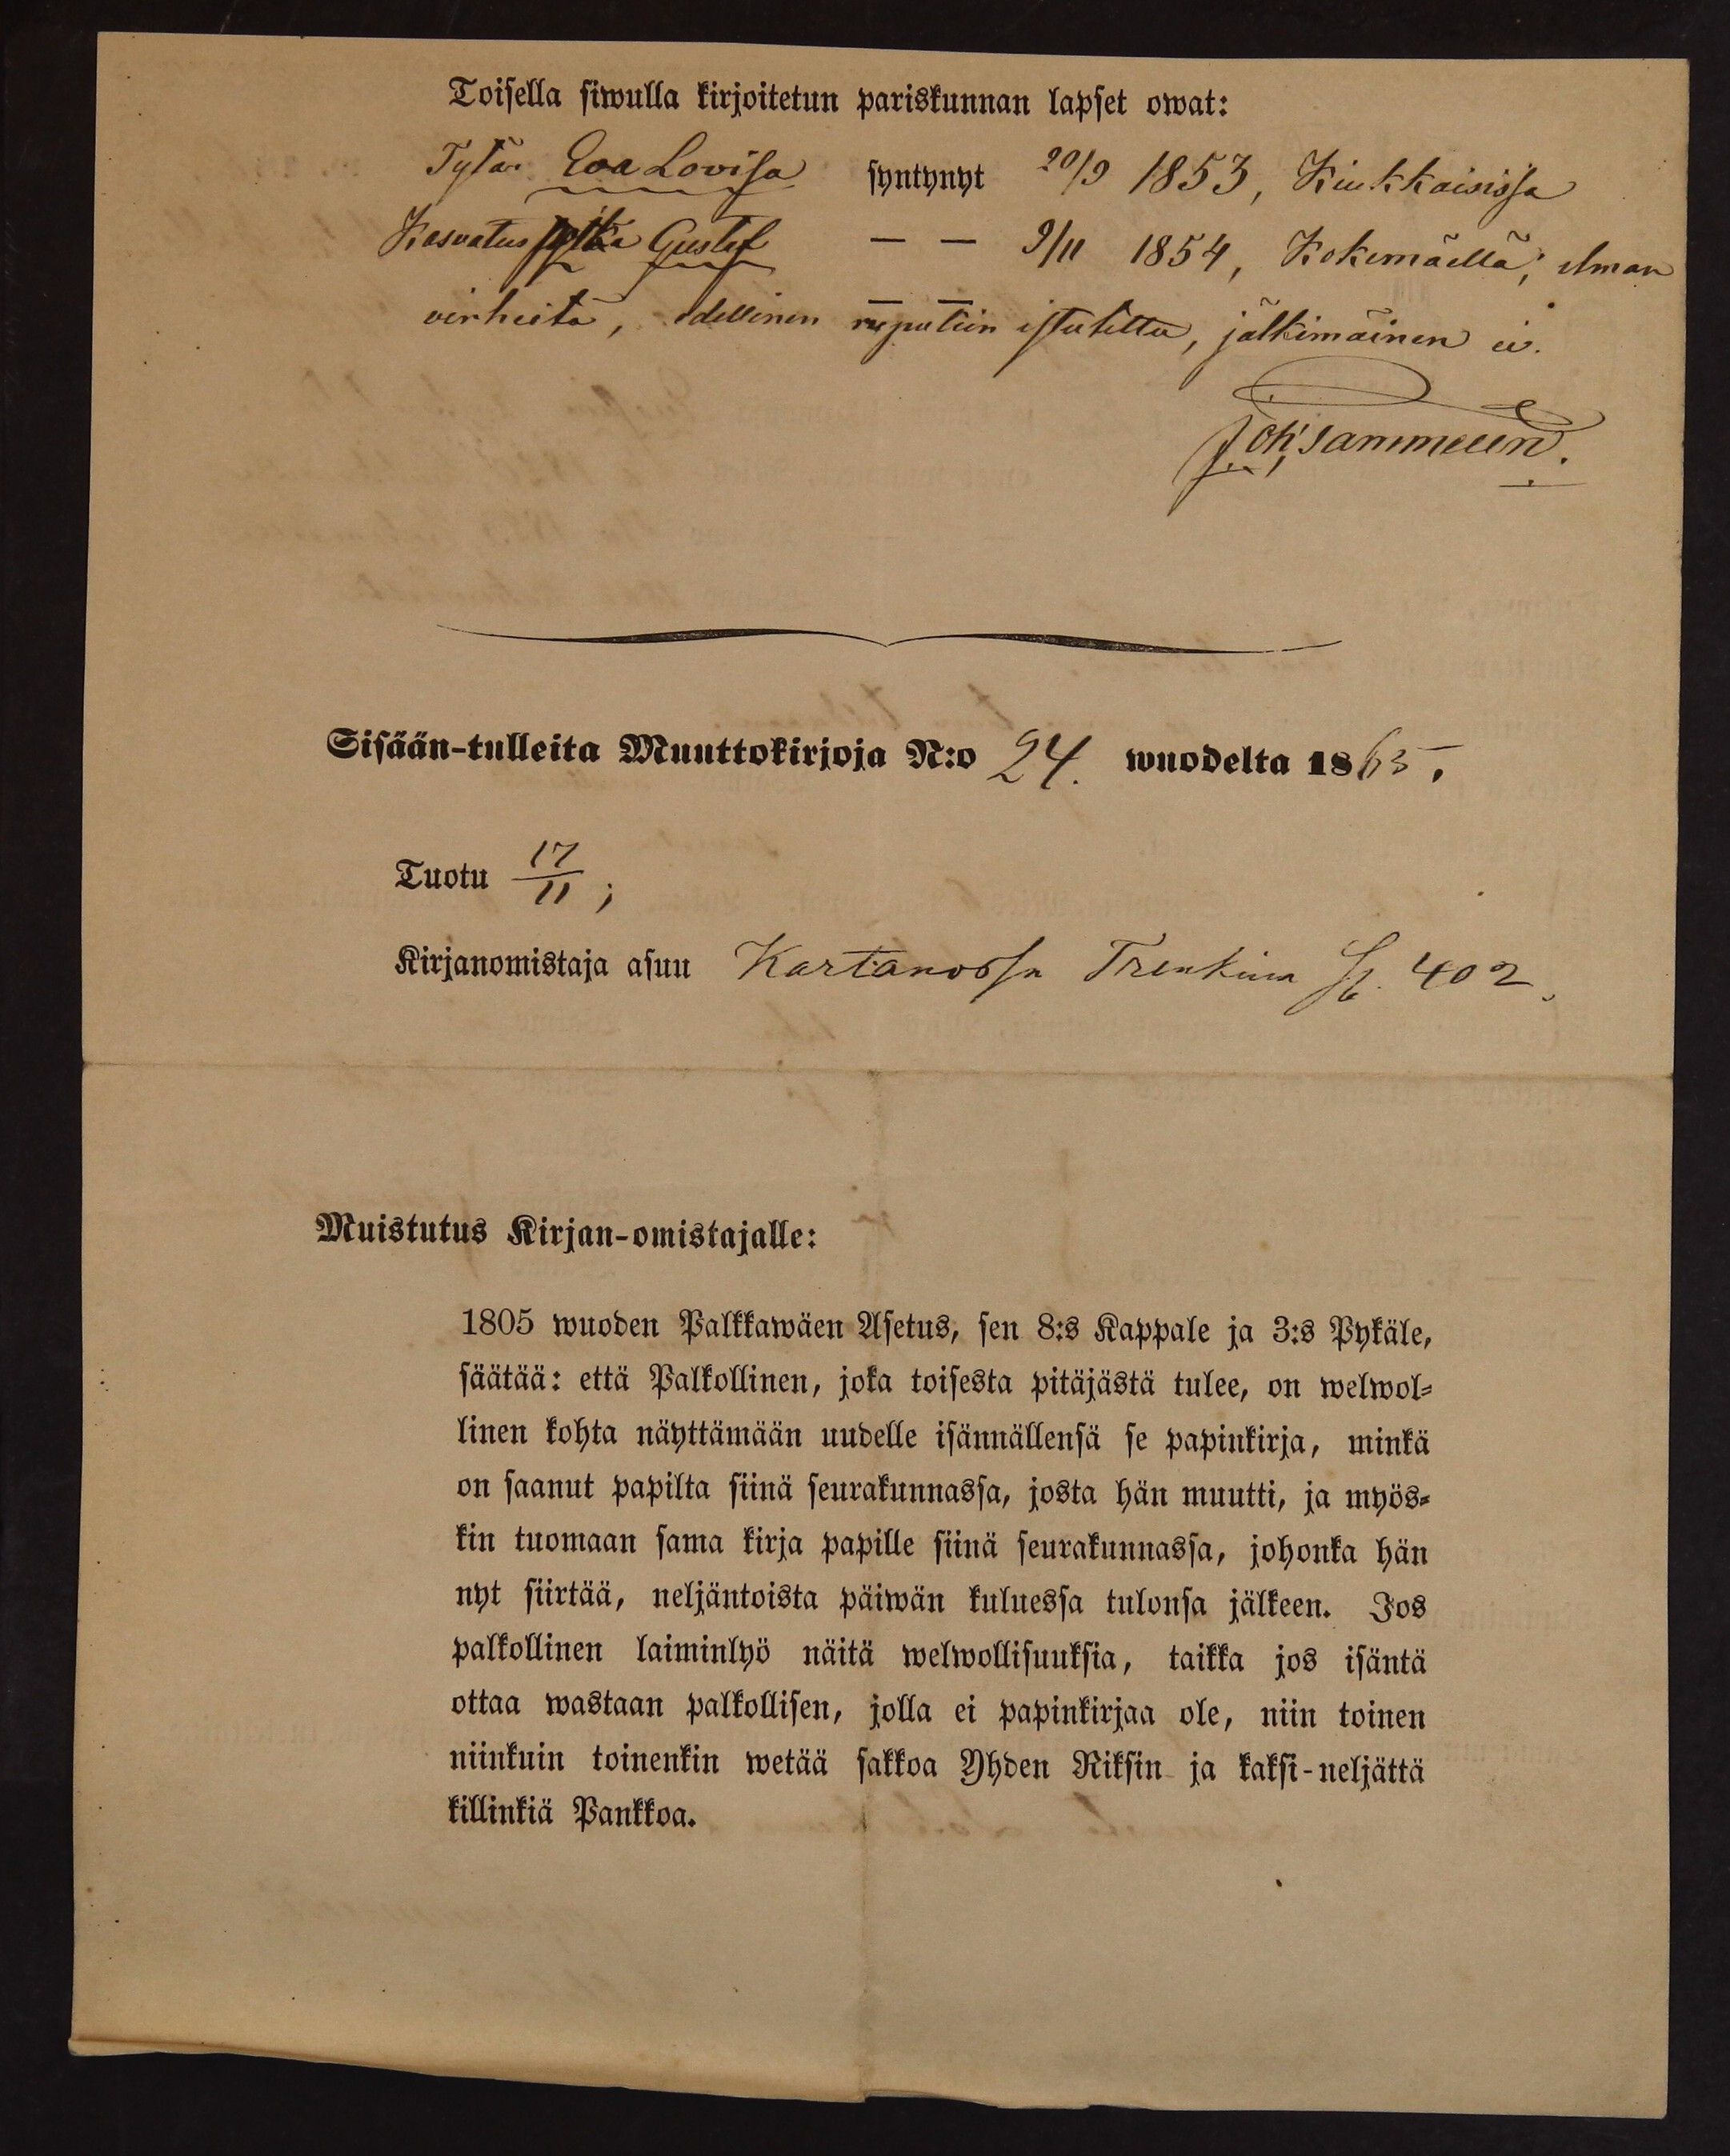 Toisella siwulla kirjoitetun pariskunnan lapset owat:
Tytär Eva Lovisa syntynyt 20/9 1853, Kiukkaisissa
Kasvatus poika Gustaf — — 9/11 1854, Kokemäellä; ilman
virheitä, edellinen rupuliin istutettu, jälkimäinen ei.
Joh. Sammelin.
Sisään-tulleita Muuttokirjoja N:o 24. wuodelta 1865.
Tuotu 17/11;
Kirjanomistaja asuu Kartanossa Trenkinä S. 402.
Muistutus Kirjan-omistajalle:
1805 wuoden Palkkawäen Asetus, sen 8:s Kappale ja 3:s Pykäle,
säätää: että Palkollinen, joka toisesta pitäjästä tulee, on welwol-
linen kohta näyttämään uudelle isännällensä se papinkirja, minkä
on saanut papilta siinä seurakunnassa, josta hän muutti, ja myös-
kin tuomaan sama kirja papille siinä seurakunnassa, johonka hän
nyt siirtää, neljäntoista päiwän kuluessa tulonsa jälkeen. Jos
palkollinen laiminlyö näitä welwollisuuksia, taikka jos isäntä
ottaa wastaan palkollisen, jolla ei papinkirjaa ole, niin toinen
niinkuin toinenkin wetää sakkoa Yhden Riksin ja kaksi-neljättä
killinkiä Pankkoa.